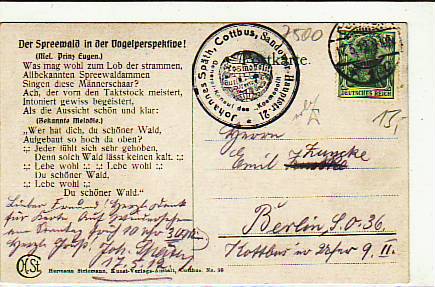 Der Spreewald in der Vogelperspektive!
(Mel. Prinz Eugen.)
Was mag wohl zum Lob der strammen,
Allbekannten Spreewaldammen
Singen diese Männerschaar?
Ach, der vorn den Taktstock meistert,
Intoniert gewiss begeistert,
Als die Aussicht schön und klar:
(Bekannte Melodie.)
„Wer hat dich, du schöner Wald,
Aufgebaut so hoch da oben?
:,: Jeder fühlt sich sehr gehoben,
Denn solch Wald lässt keinen kalt. :,:
:,: Lebe wohl :,: :,: Lebe wohl :,:
Du schöner Wald!
:,: Lebe wohl :,: :,: Lebe wohl :,:
Du schöner Wald."
Lieber Freund! Herzl. Dank
für Karte. Auf
am Sonntag 10
Herzl. Gruß, Joh. Späth
17.5.12
Hermann Striemann, Kunst-Verlags-Anstalt, Cottbus. No. 99
Johannes Späth, Cottbus, Sandower-Hauptstr. 21
Postkarte.
2500
DEUTSCHES REICH
15,-
Herrn
Emil
Berlin S.O. 36.
Kottbuser Ufer 9 II.